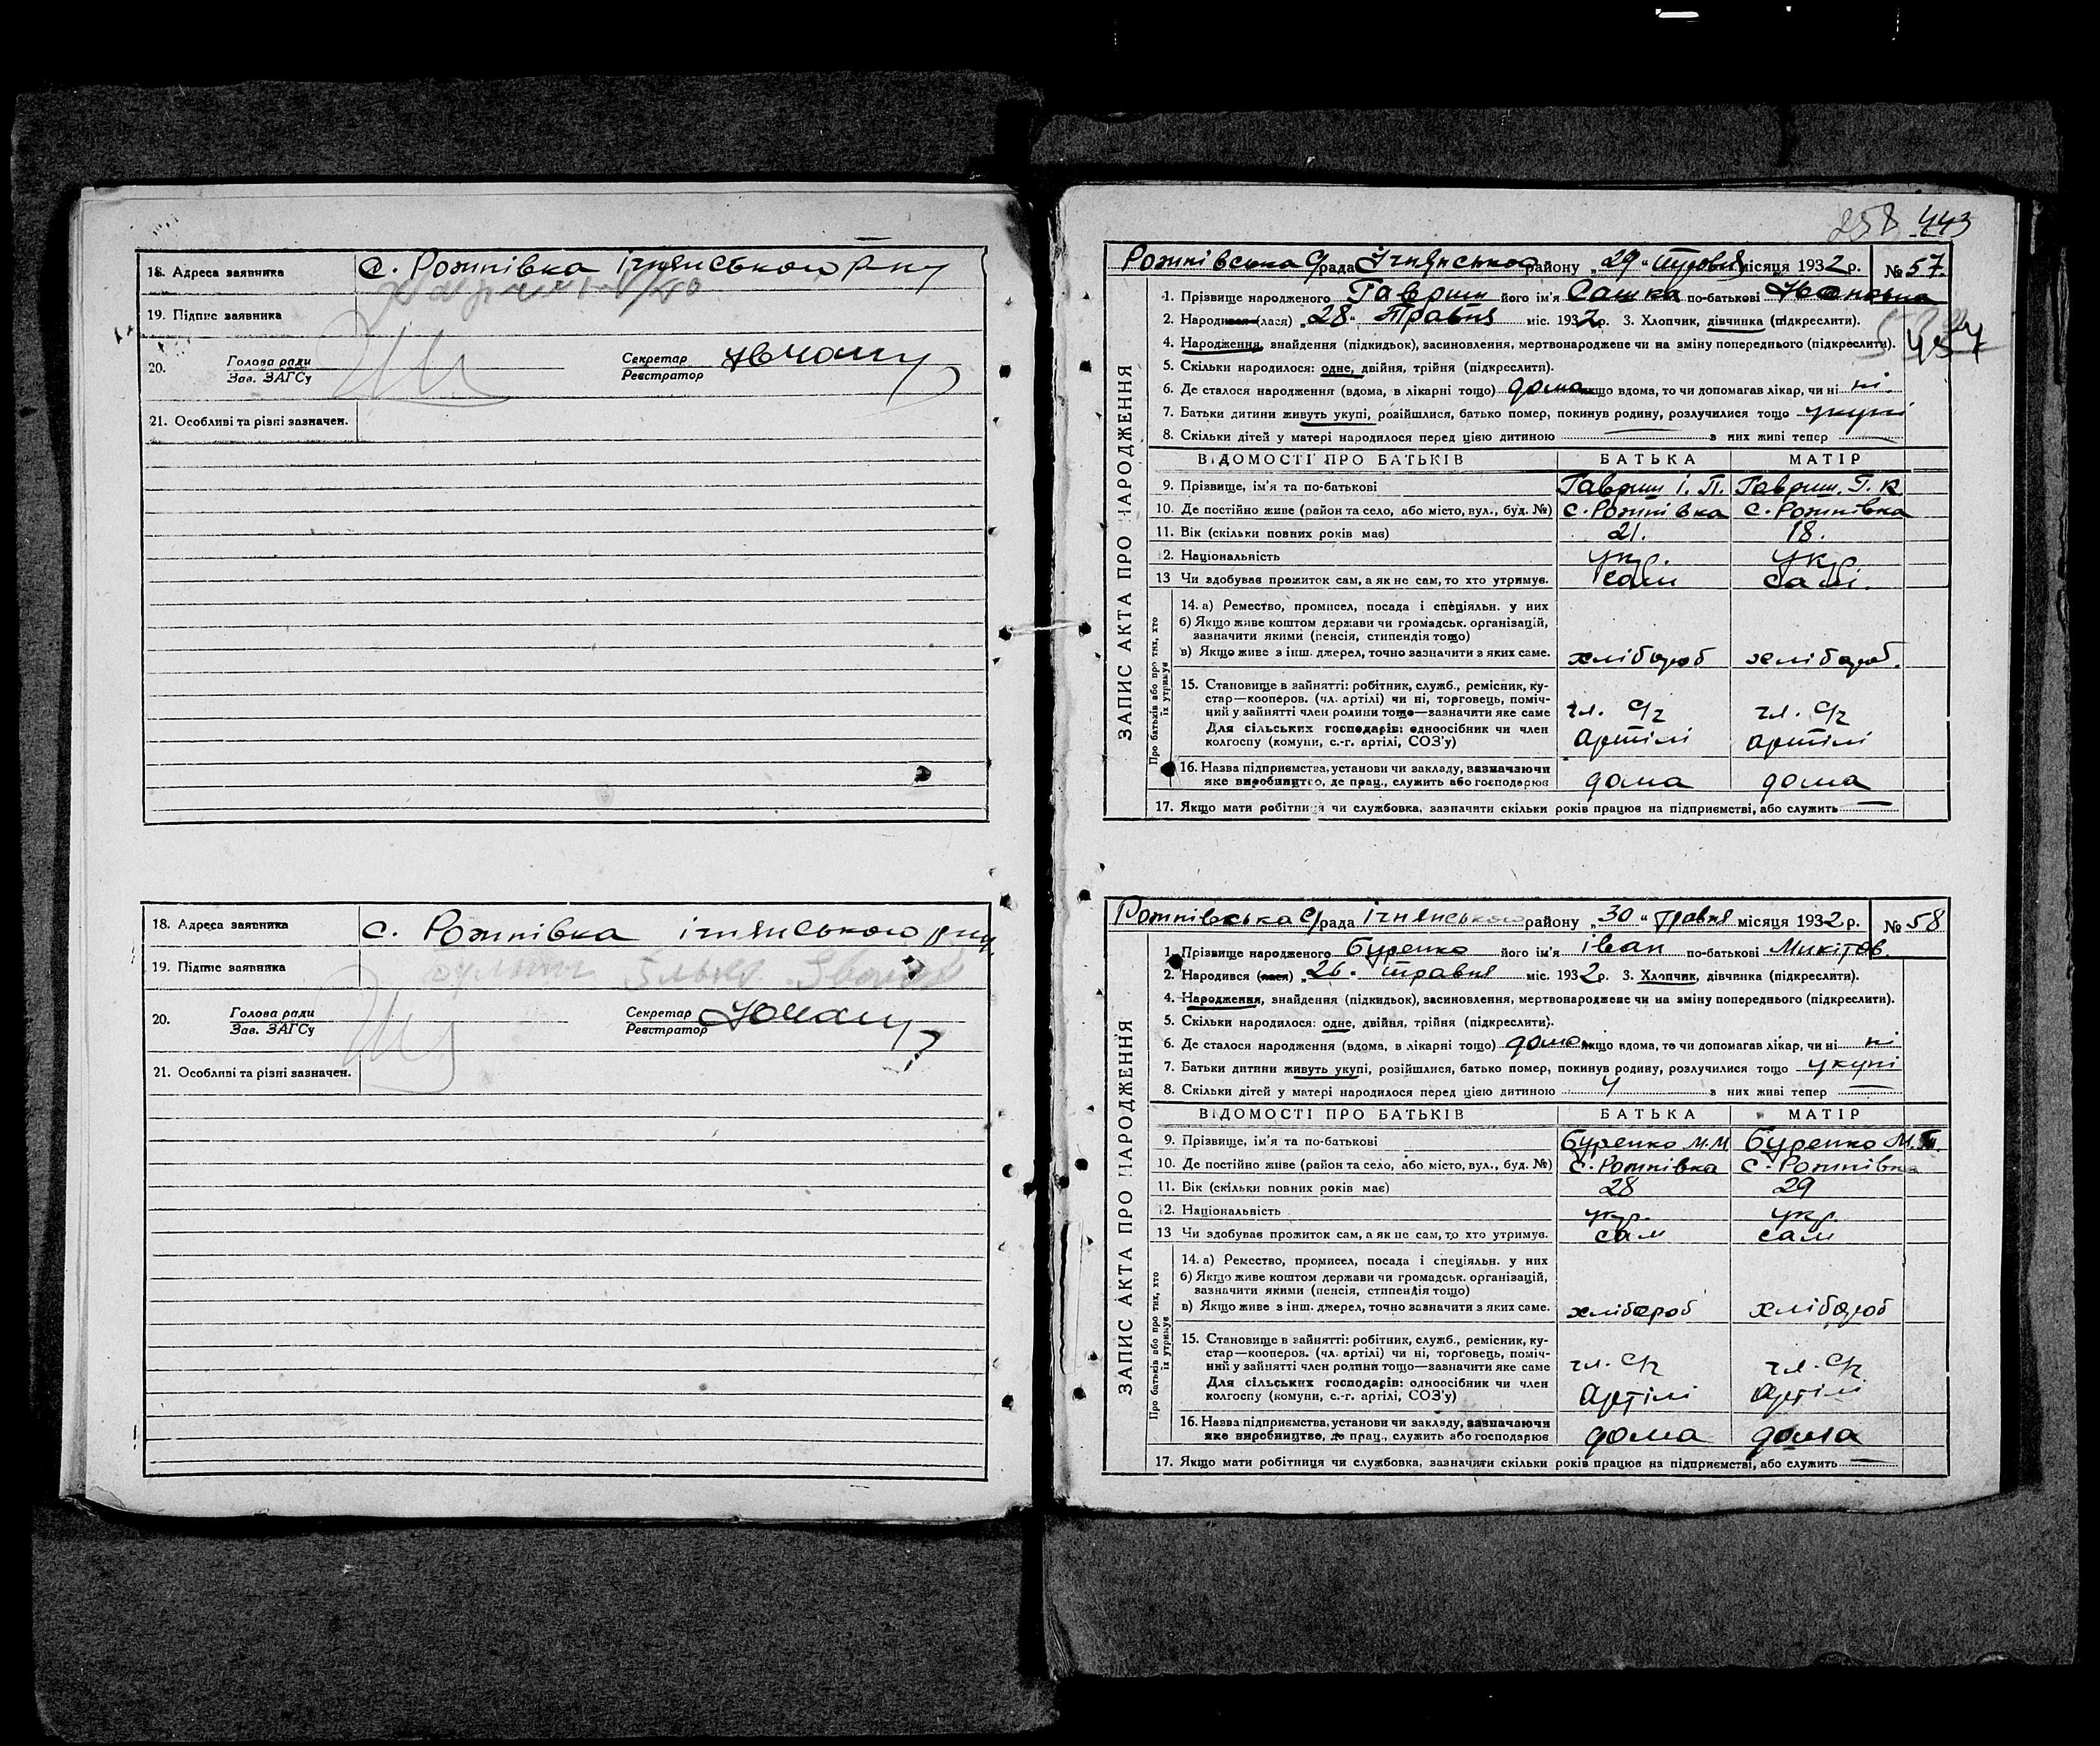 18. Адреса заявника с. Рожнівка ічнянського р-ну
19. Підпис заявника
20. Голова ради Секретар
Зав. ЗАГСу Реєстратор
21. Особливі та різні зазначен.
18. Адреса заявника с. Рожнівка ічнянського р-ну
19. Підпис заявника
20. Голова ради Секретар
Зав. ЗАГСу Реєстратор
21. Особливі та різні зазначен.
258 443
Рожнівська С/рада Ічнянського району „29“ травня місяця 1932 р. № 57.
ЗАПИС АКТА ПРО НАРОДЖЕННЯ
1. Прізвище народженого Гавриш його ім'я Сашка по-батькові Івановна
2. Народився (лася) „28“ Травня міс. 1932 р. 3. Хлопчик, дівчинка (підкреслити).
4. Народження, знайдення (підкидьок), засиновлення, мертвонароджене чи на зміну попереднього (підкреслити).
5. Скільки народилося: одне, двійня, трійня (підкреслити).
6. Де сталося народження (вдома, в лікарні тощо) дома якщо вдома, то чи допомагав лікар, чи ні ні.
7. Батьки дитини живуть укупі, розійшлися, батько помер, покинув родину, розлучилися тощо укупі
8. Скільки дітей у матері народилося перед цією дитиною — з них живі тепер —
ВІДОМОСТІ ПРО БАТЬКІВ БАТЬКА МАТІР
9. Прізвище, ім'я та по-батькові Гавриш І. П. Гавриш. П. К
10. Де постійно живе (район та село, або місто, вул., буд. №) с. Рожнівка с. Рожнівка
11. Вік (скільки повних років має) 21. 18.
2. Національність укр. укр.
13 Чи здобуває прожиток сам, а як не сам, то хто утримує. сам самі.
Про батьків або про тих, хто їх утримує
14. а) Ремество, промисел, посада і спеціяльн. у них
б) Якщо живе коштом держави чи громадськ. організацій,
зазначити якими (пенсія, стипендія тощо)
в) Якщо живе з інш. джерел, точно зазначити з яких саме. хлібороб хлібороб.
15. Становище в зайнятті: робітник, служб., ремісник, ку-
стар—кооперов. (чл. артілі) чи ні, торговець, поміч-
ний у зайнятті член родини тощо—зазначити яке саме чл. с/г чл. с/г
Для сільських господарів: одноосібник чи член
колгоспу (комуни, с.-г. артілі, СОЗ'у) артілі артілі
16. Назва підприємства, установи чи закладу, зазначаючи
яке виробництво, де прац., служить або господарює дома дома
17. Якщо мати робітниця чи службовка, зазначити скільки років працює на підприємстві, або служить —
Рожнівська С/рада ічнянського району „30“ травня місяця 1932 р. № 58
ЗАПИС АКТА ПРО НАРОДЖЕННЯ
1. Прізвище народженого Буренко його ім'я іван по-батькові Микітов.
2. Народився (лася) „26. травня міс. 1932 р. 3. Хлопчик, дівчинка (підкреслити).
4. Народження, знайдення (підкидьок), засиновлення, мертвонароджене чи на зміну попереднього (підкреслити).
5. Скільки народилося: одне, двійня, трійня (підкреслити).
6. Де сталося народження (вдома, в лікарні тощо) дома якщо вдома, то чи допомагав лікар, чи ні ні
7. Батьки дитини живуть укупі, розійшлися, батько помер, покинув родину, розлучилися тощо укупі
8. Скільки дітей у матері народилося перед цією дитиною з них живі тепер —
ВІДОМОСТІ ПРО БАТЬКІВ БАТЬКА МАТІР
9. Прізвище, ім'я та по-батькові Буренко М. М. Буренко М.
10. Де постійно живе (район та село, або місто, вул., буд. №) с. Рожнівка с. Рожнівка
11. Вік (скільки повних років має) 28 29
12. Національність укр. укр.
13 Чи здобуває прожиток сам, а як не сам, то хто утримує. сам сам
Про батьків або про тих, хто їх утримує
14. а) Ремество, промисел, посада і спеціяльн. у них
б) Якщо живе коштом держави чи громадськ. організацій,
зазначити якими (пенсія, стипендія тощо)
в) Якщо живе з інш. джерел, точно зазначити з яких саме. хлібороб хлібороб
15. Становище в зайнятті: робітник, служб., ремісник, ку-
стар—кооперов. (чл. артілі) чи ні, торговець, поміч-
ний у зайнятті член родини тощо—зазначити яке саме чл. с/г чл. с/г.
Для сільських господарів: одноосібник чи член
колгоспу (комуни, с.-г. артілі, СОЗ'у) артілі артілі
16. Назва підприємства, установи чи закладу, зазначаючи
яке виробництво, де прац., служить або господарює дома дома
17. Якщо мати робітниця чи службовка, зазначити скільки років працює на підприємстві, або служить —